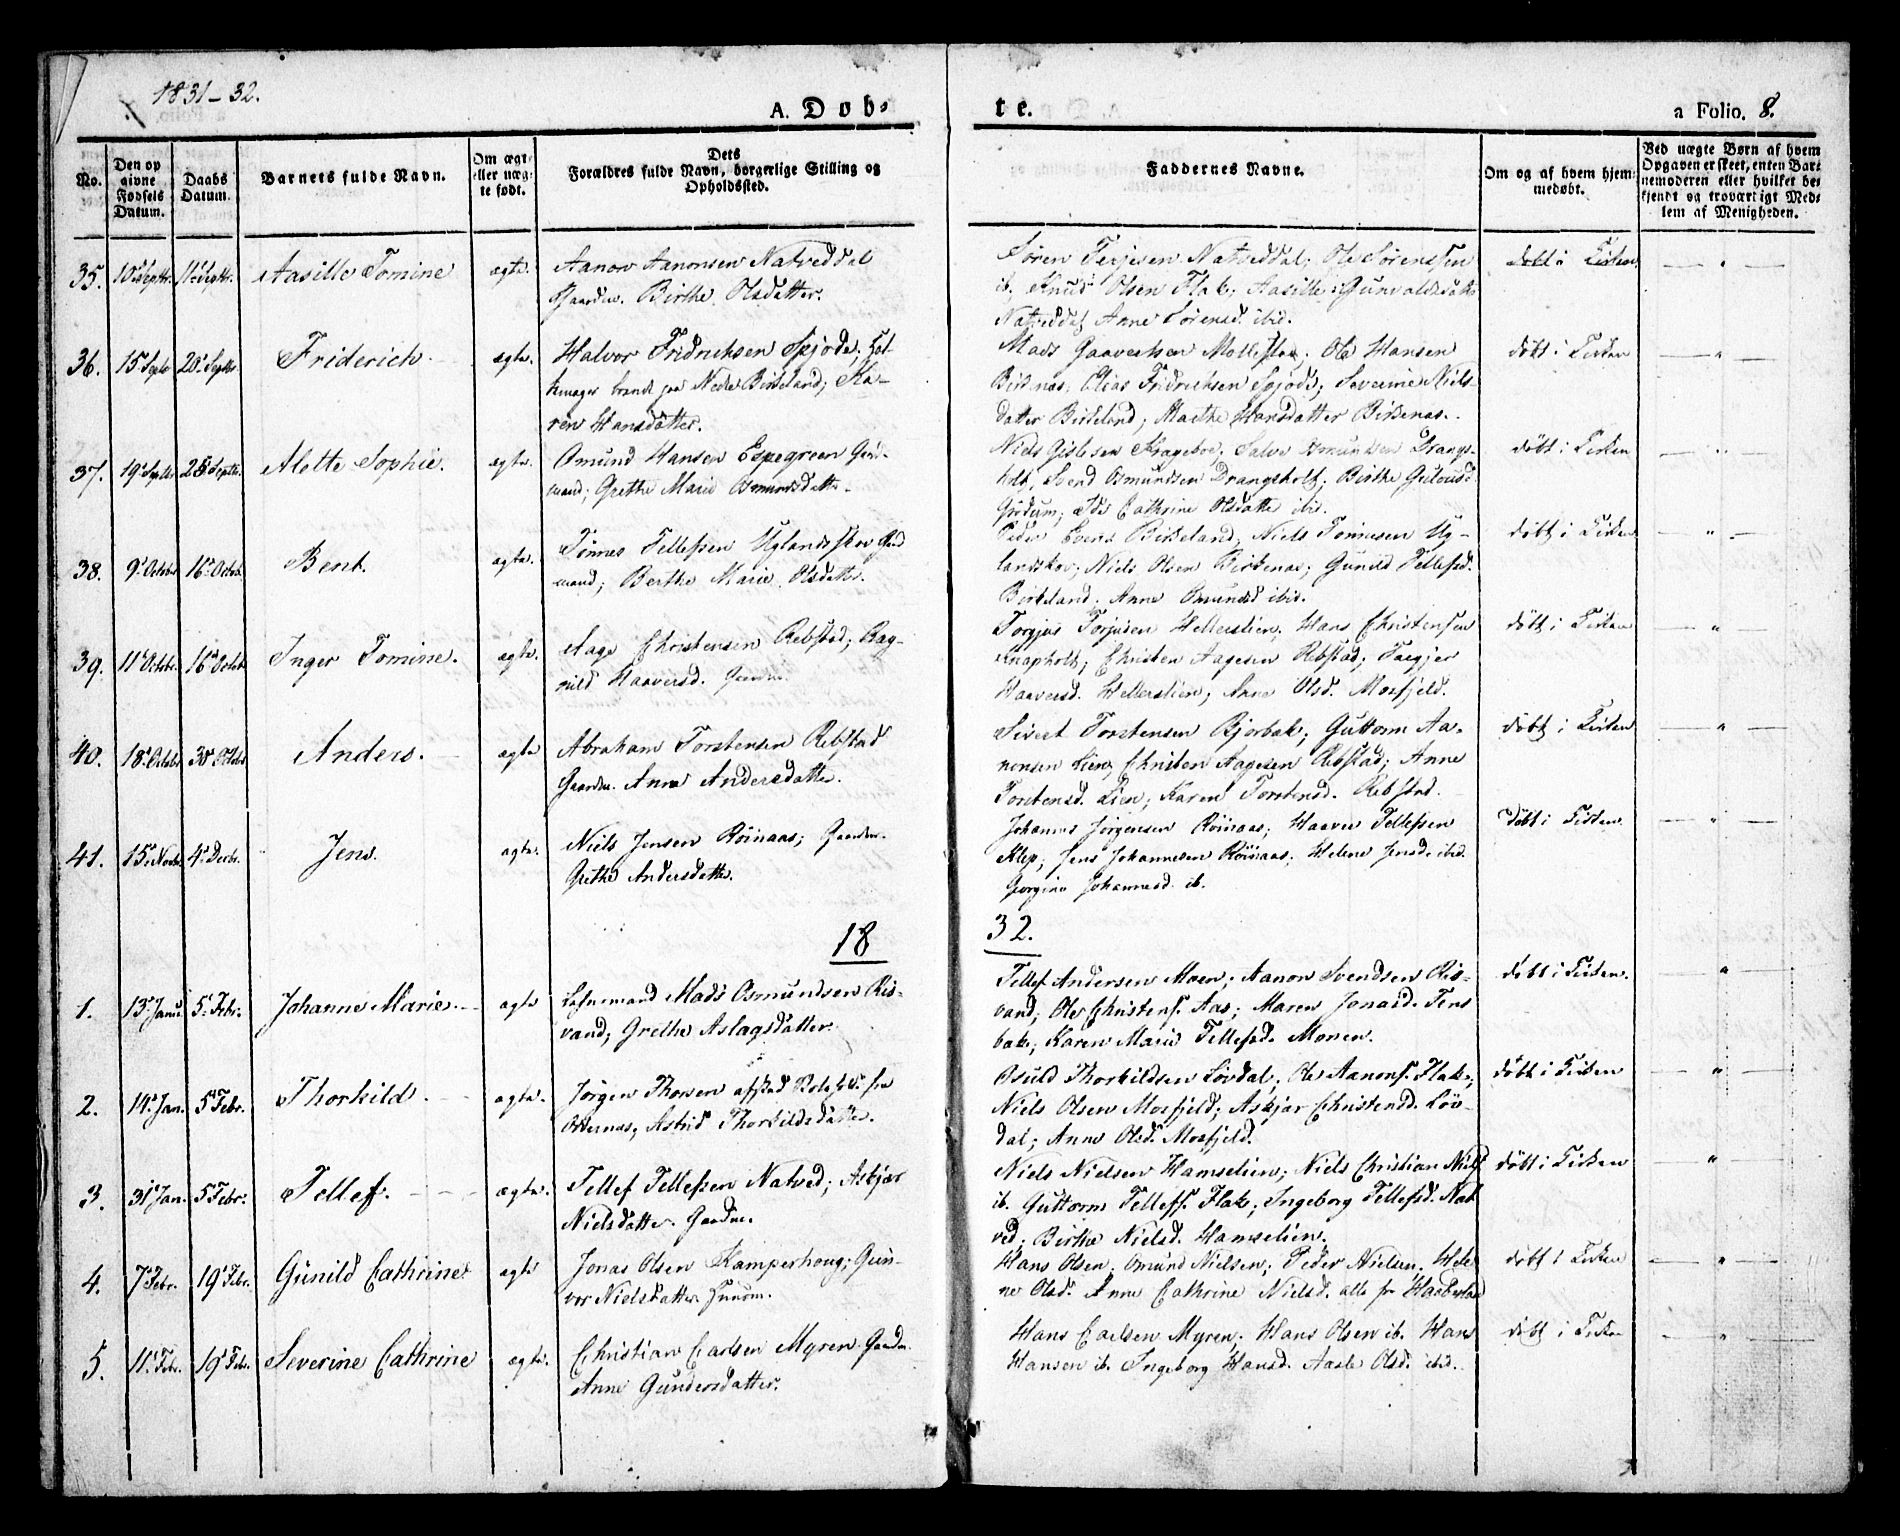 1831-32.
A. Døb-
te.
a Folio. 8.
No.
Den op
givne
Fødsels
Datum.
Daabs
Datum.
Barnets fulde Navn.
Om ægte
eller uæg-
te født.
Dets
Forældres fulde Navn, borgerlige Stilling og
Opholdssted.
Faddernes Navne.
Om og af hvem hjem-
medøbt.
Ved uægte Børn af hvem
Opgaven er skeet, enten Bar-
nemoderen eller hvilket be-
kjendt og troværdigt Med-
lem af Menigheden.
35. 10 Septr. 11 Septr. Aasille Tomine ægte. Aanon Aanonsen Natveddal
Gaardm. Birthe Olsdatter.
Søren Terjesen Natveddal; Ole Sørenssen
ib. Knud Olsen Flak; Aasille Gunvaldsdatt.
Natveddal Anne Sørensd. ibid.
døbt i Kirken
36. 15 Septr 20 Septr. Friderich ægte. Halvor Fridrichsen Spjode,
boende paa Nedre Birkeland; Ka-
ren Hansdatter.
Mads Gaaversen Mollestad; Ole Hansen
Birkenas; Elias Fridrichsen Spjode; Severine Niels-
datter Birkeland; Marthe Hansdatter Birkenas.
døbt i Kirken
37. 19 Septr 25 Septr. Alette Sophie. ægte. Omund Hansen Espegreen Gaard-
mand; Grethe Marie Osmundsdatter.
Niels Gislesen Krageboe; Salve Osmundsen Drangs-
holt, Svend Osmundsen Drangsholt; Birthe
Cathrine Olsdatter ibid.
døbt i Kirken
38. 9 Octobr 16 Octob. Bent. ægte. Tønnes Tellefsen Uglandsskov Gaard
mand; Berthe Marie Olsdatter.
Peder Evens Birkeland; Niels Tønnesen Ug-
landskov; Niels Olsen Birkenas; Gunild Tellefsd.
Birkeland. Anne Omundsd ibid.
døbt i Kirken
39. 11 Octobr. 16 Octob Inger Tomine. ægte. Aage Christensen Rebstad; Rag-
nild Haaversd. Gaardm.
Torgjus Torjusen Hellerslien. Hans Christensen
Knapholt; Christen Aagesen Rebstad; Targjer
Haaversd. Hellerslien; Anne Olsd. Mosfjeld.
døbt i Kirken
40. 18 Octobr 30 Octobr Anders. ægte Abraham Torstensen Rebstad
Gaardm. Anne Andersdatter.
Sivert Torstensen Bjorbak; Guttorm Aa-
nonsen Lien; Christen Aagesen Rebstad; Anne
Torstensd. Lien; Karen Torstensd. Rebstad.
døbt i Kirken
41. 15 Novbr. 4 Decbr. Jens. ægte. Niels Jensen Röinaas; Gaardm.
Grethe Andersdatter.
Johannes Jörgensen Röinaas; Haaver Tellefsen
Klep; Jens Johannesen Röinaas. Helene Jensd. ibid.
Gorgine Johannesd. ib.
døbt i Kirken.
18
32.
1. 13 Janu. 5 Febr. Johanne Marie. ægte Mads Osmundsen Ris-
vand; Grethe Aslagsdatter.
Tellef Andersen Moen; Aanon Svendsen Ris-
vand; Ole Christens. Aas; Maren Jonasd. Tens
bak; Karen Marie Tellefsd. Monen.
døbt i Kirken.
2. 14 Jan. 5 Febr. Thorkild. ægte. Jörgen Thorsen
Astrid Thorkildsdatter.
Osuld Thorkildsen Lövdal; Ole Aanons. Flak;
Niels Olsen Mosfjeld; Askjær Christensd. Löv-
dal; Anne Olsd. Mosfjeld.
døbt i Kirken
3. 31 Jan. 5 Febr. Tellef. ægte. Tellef Tellefsen Natved; Askjær
Nielsdatter. Gaardm.
Niels Nielsen Hamselien; Niels Christian Niels.
ib. Guttorm Tellefs. Flak; Ingeborg Tellefsd. Nat
ved; Birthe Nielsd. Hamselien.
døbt i Kirken
4. 7 Febr. 19 Febr. Gunild Cathrine ægte Jonas Olsen Kamperhoug; Gun-
vor Nielsdatter. Huusm.
Hans Olsen; Omund Nielsen; Peder Nielsen. Hele
ne Olsd. Anne Cathrine Nielsd. alle fr Haaberland
døbt i Kirken
5. 11 Febr. 19 Febr. Severine Cathrine ægte. Christian Carlsen Myren Gaardm.
Anne Gundersdatter.
Hans Carlsen Myren; Hans Olsen ib. Hans
Hansen ib. Ingeborg Hansd. Aasle Olsd. ibid.
døbt i Kirken